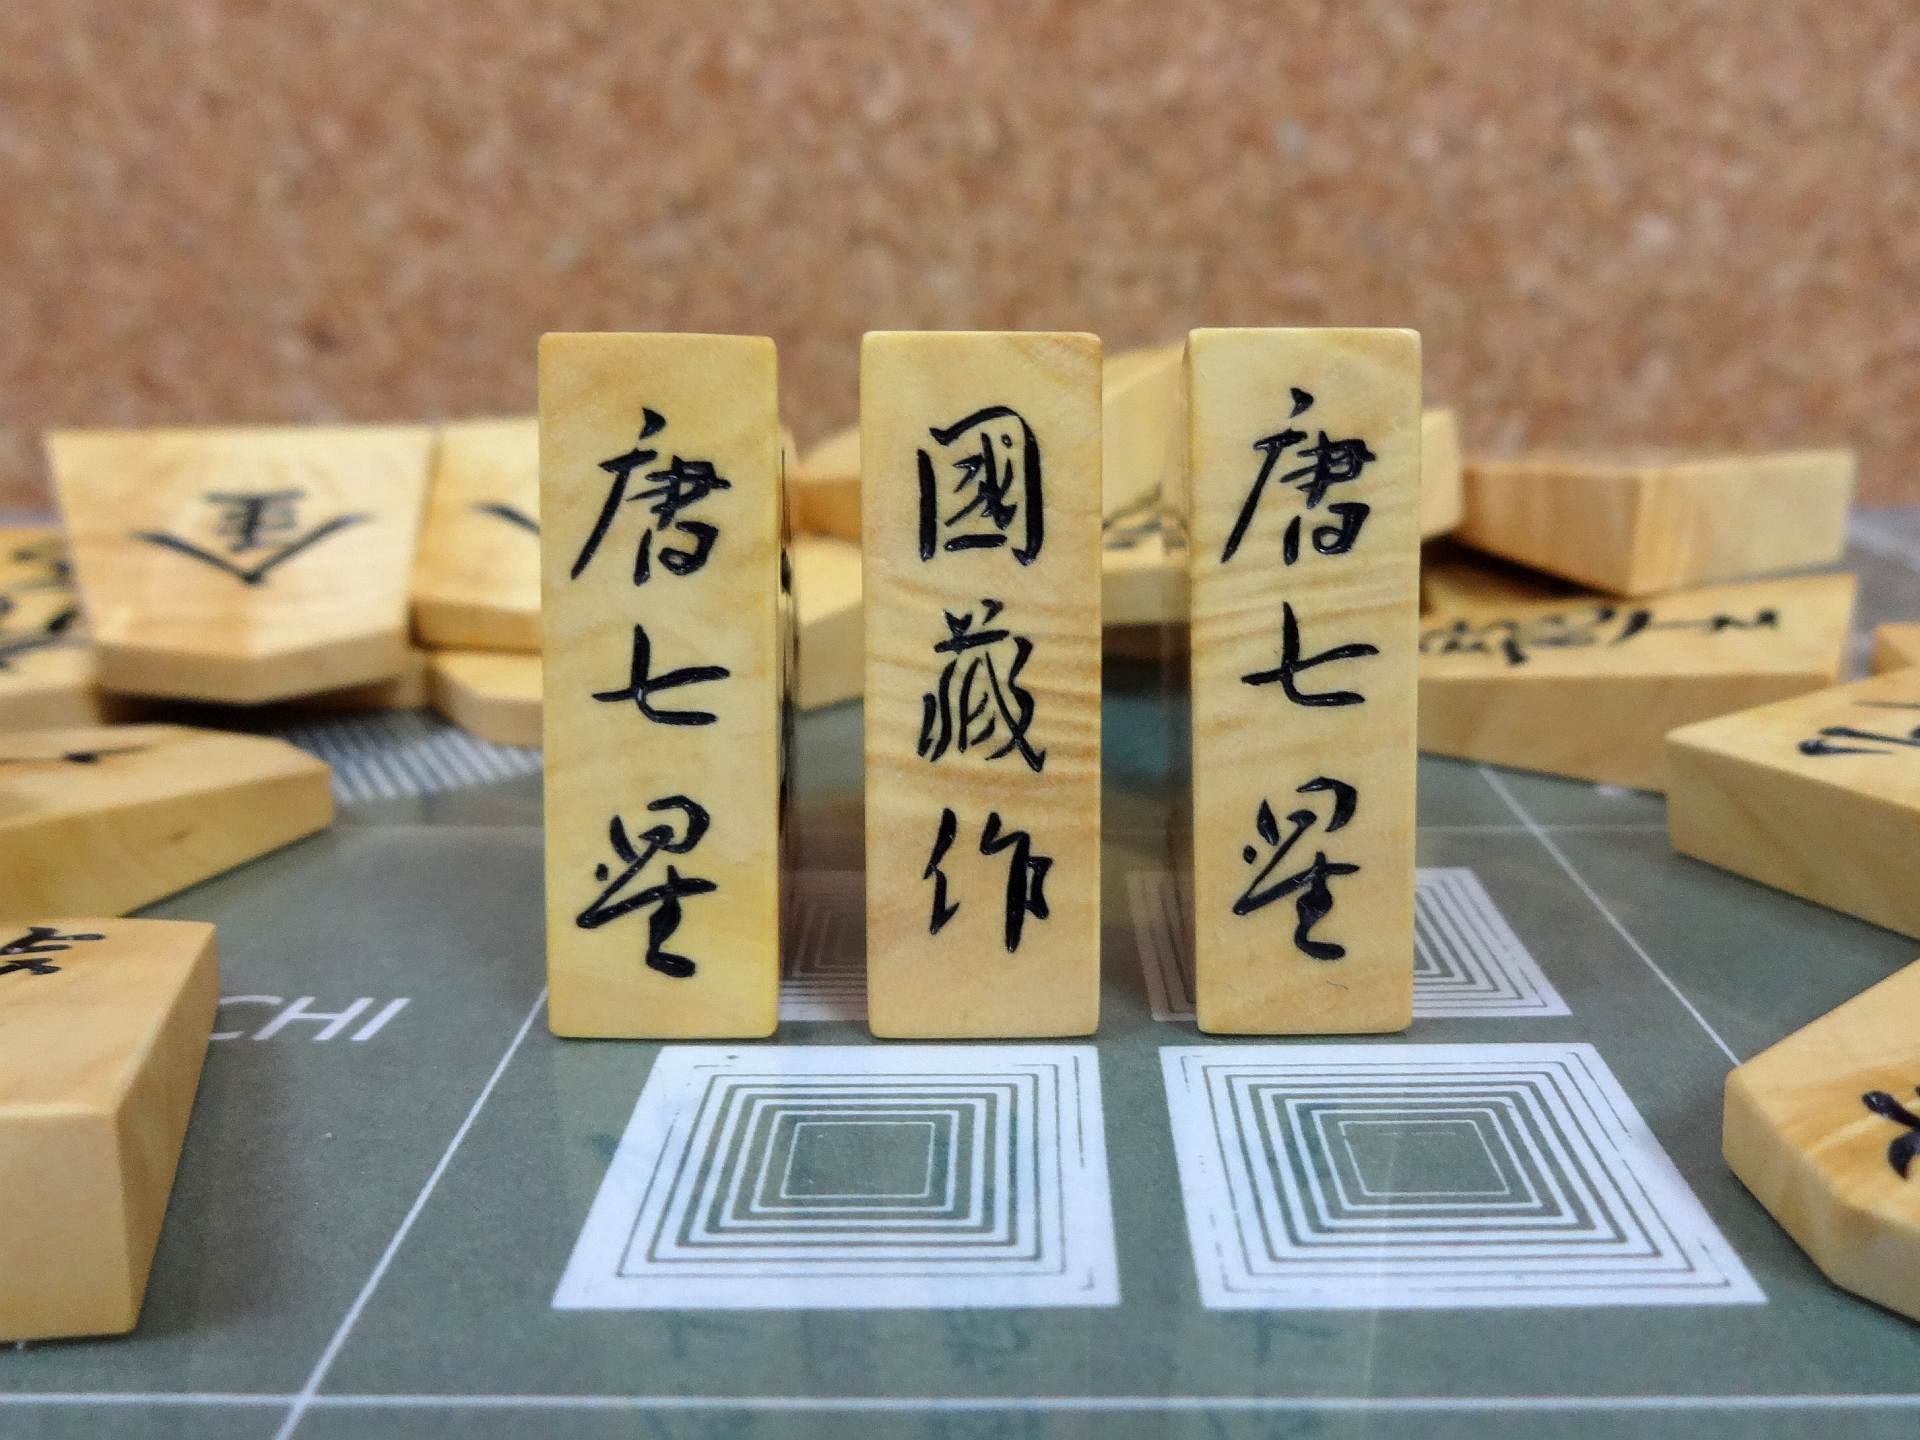 唐七星
國藏作
唐七星
CHI